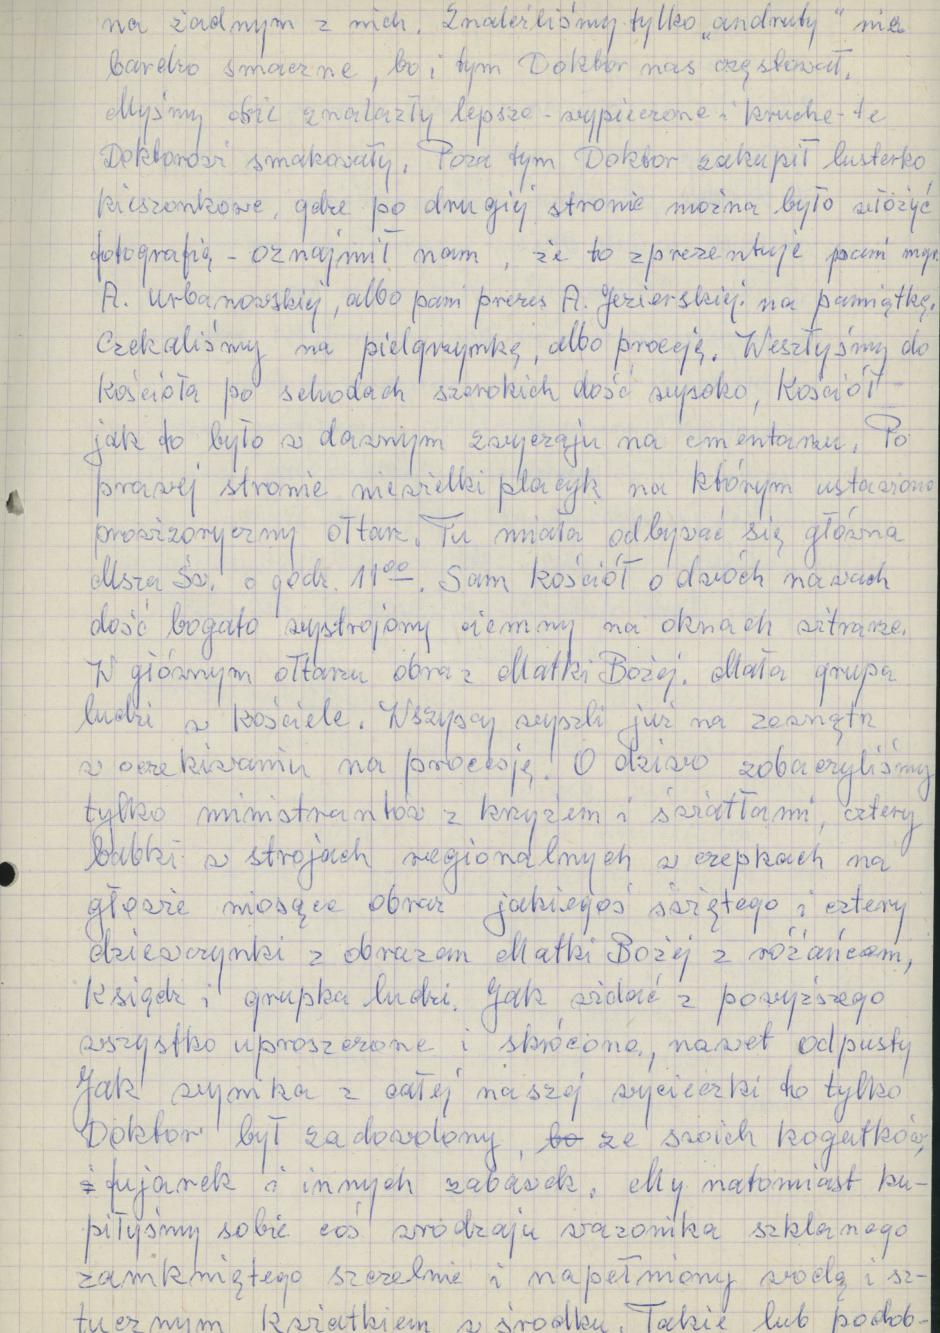 na żadnym z nich. Znaleźliśmy tylko „andruty" nie
bardzo smaczne, bo i tym Doktor nas częstował.
Myśmy obie znalazły lepsze - wypieczone i kruche - te
Doktorowi smakowały. Poza tym Doktor zakupił lusterko
kieszonkowe, gdzie po drugiej stronie można było włożyć
fotografię - oznajmił nam, że to zprezentuje pani mgr.
A. Urbanowskiej, albo pani prezes A. Jezierskiej na pamiątkę.
Czekaliśmy na pielgrzymkę, albo procesję. Weszłyśmy do
Kościoła po schodach szerokich dość wysoko, Kościół
jak to było w dawnym zwyczaju na cmentarzu. Po
prawej stronie niewielki placyk na którym ustawiono
prowizoryczny ołtarz. Tu miała odbywać się główna
Msza Św. o godz. 11⁰⁰. Sam kościół o dwóch nawach
dość bogato wystrojony ciemny na oknach witraże.
W głównym ołtarzu obraz Matki Bożej. Mała grupa
ludzi w kościele. Wszyscy wyszli już na zewnątrz
w oczekiwaniu na procesję! O dziwo zobaczyliśmy
tylko ministrantów z krzyżem i światłami, cztery
babki w strojach regionalnych w czepkach na
głowie niosące obraz jakiegoś świętego i cztery
dziewczynki z obrazem Matki Bożej z różańcem,
Ksiądz i grupka ludzi. Jak widać z powyższego
wszystko uproszczone i skrócone, nawet odpusty
Jak wynika z całej naszej wycieczki to tylko
Doktor był zadowolony, bo ze swoich kogutków,
i fujarek i innych zabawek. My natomiast ku-
piłyśmy sobie coś w rodzaju wazonika szklanego
zamkniętego szczelnie i napełniony wodą i sz-
tucznym kwiatkiem w środku. Takie lub podob-